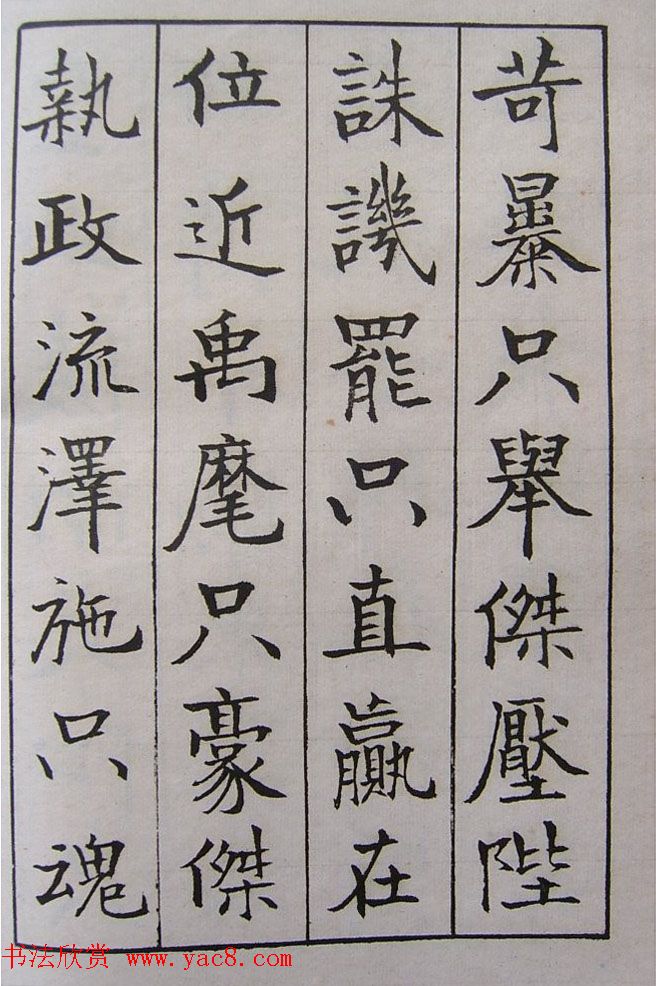 苛暴只舉傑壓陛
誅譏罷只直贏在
位近禹麾只豪傑
執政流澤施只魂
书法欣赏 www.yac8.com